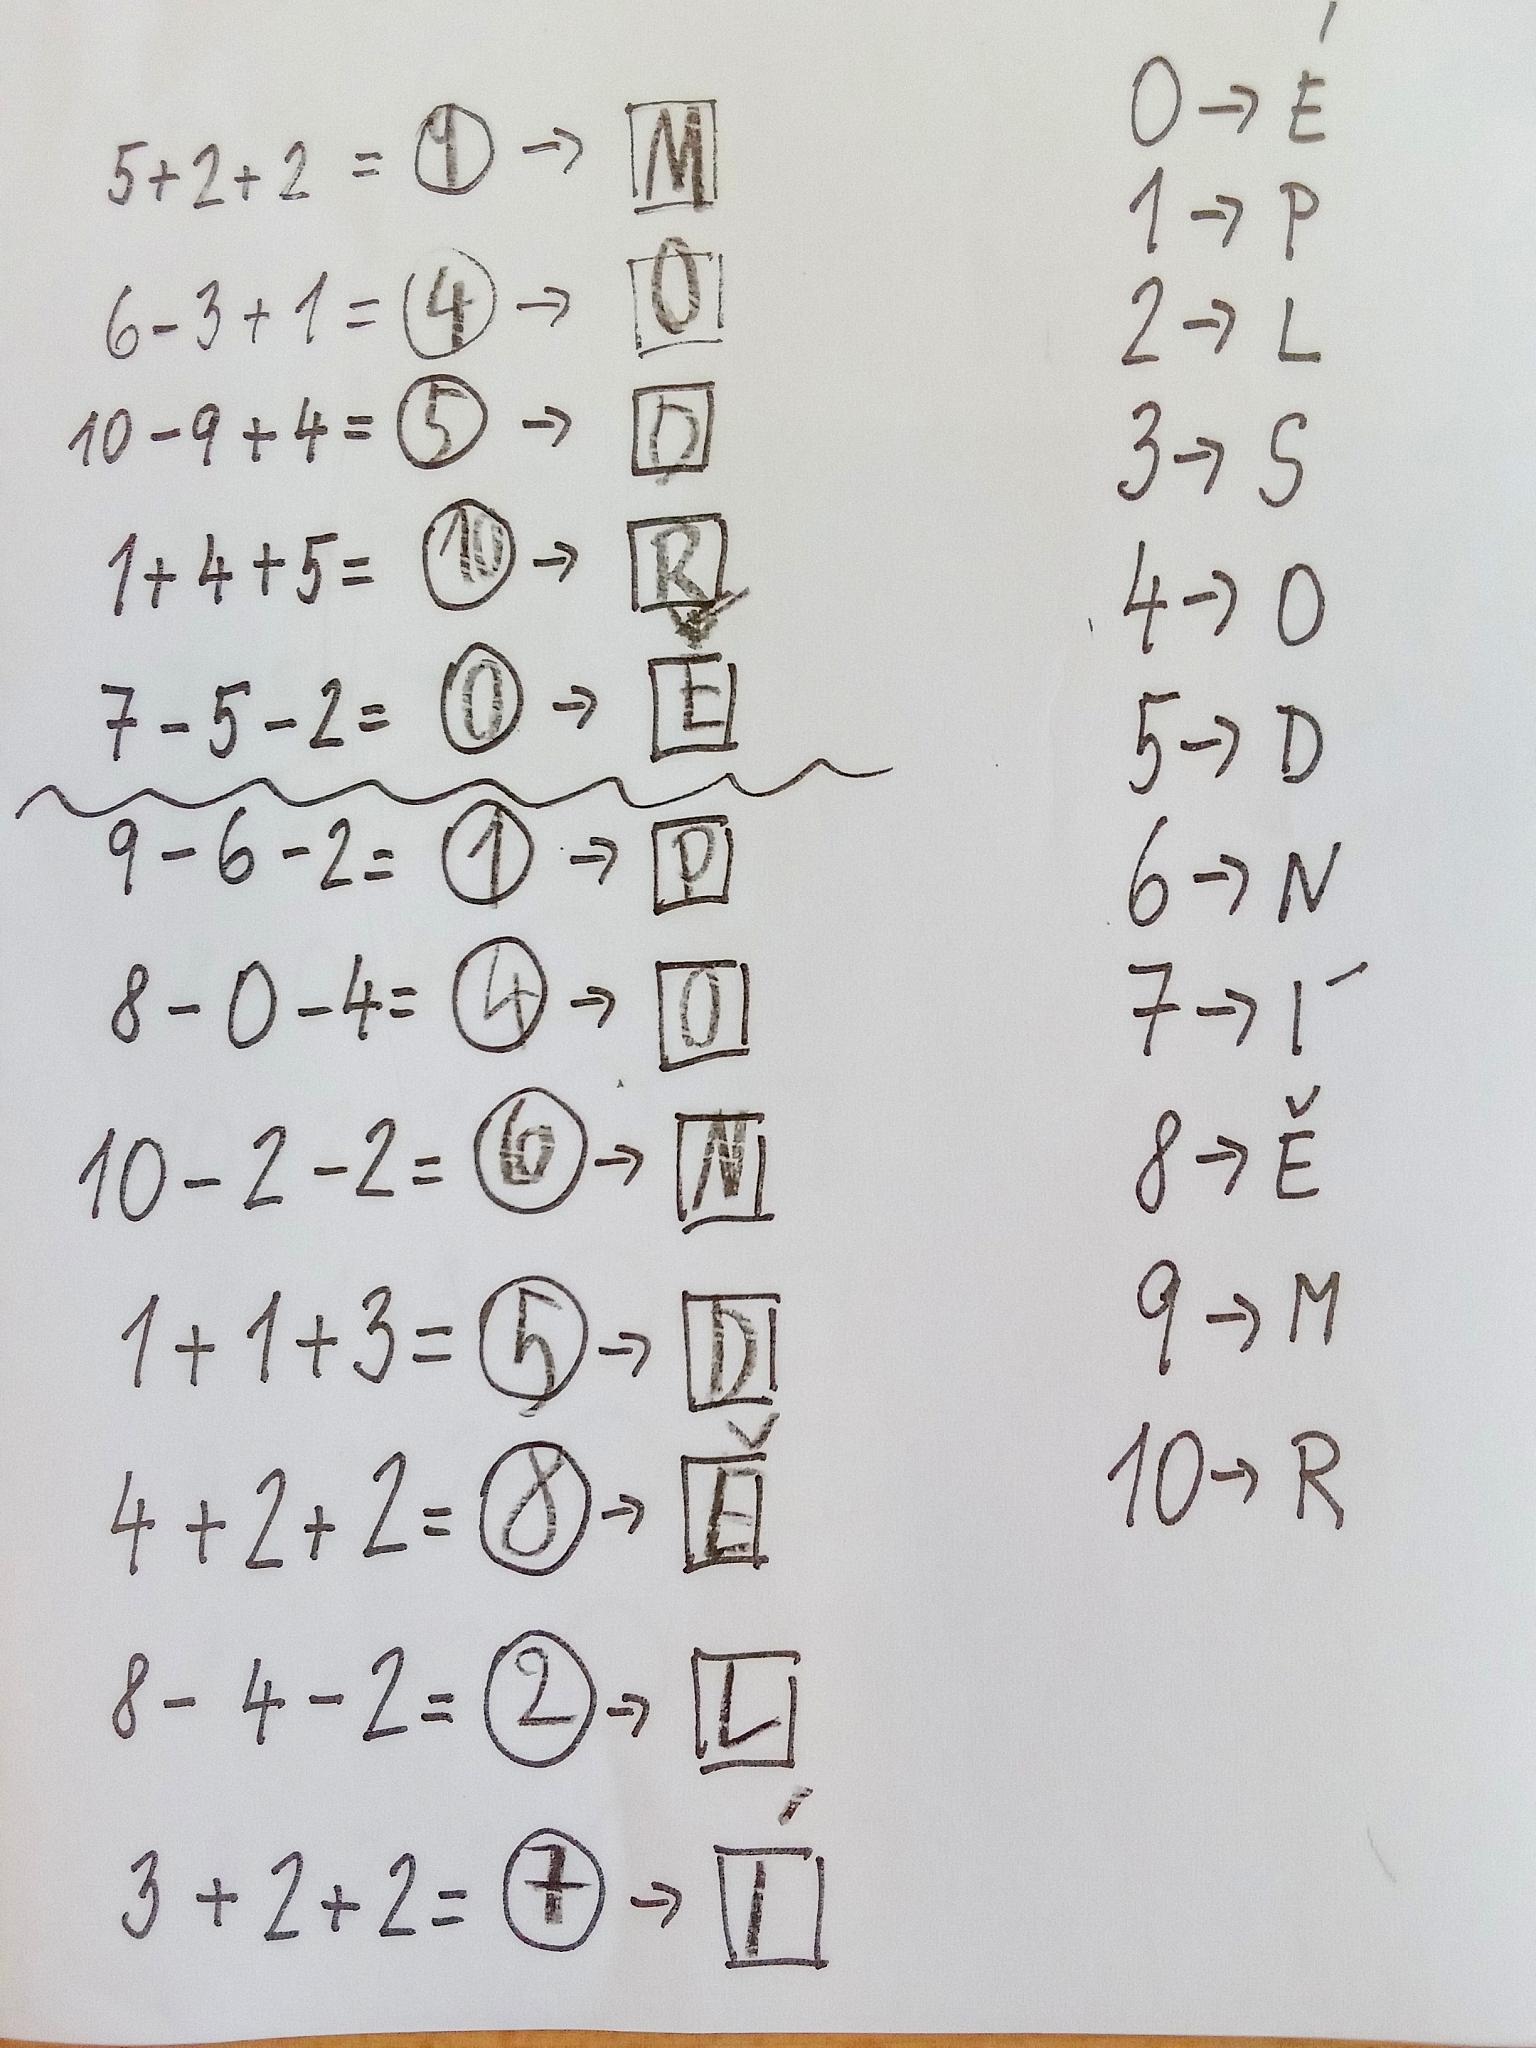 5+2+2 = 9 → M
6-3+1 = 4 → O
10-9+4 = 5 → D
1+4+5 = 10 → R
7-5-2 = 0 → É
9-6-2 = 1 → P
8-0-4 = 4 → O
10-2-2 = 6 → N
1+1+3 = 5 → D
4+2+2 = 8 → Ě
8-4-2 = 2 → L
3+2+2 = 7 → Í
0 → É
1 → P
2 → L
3 → S
4 → O
5 → D
6 → N
7 → Í
8 → Ě
9 → M
10 → R